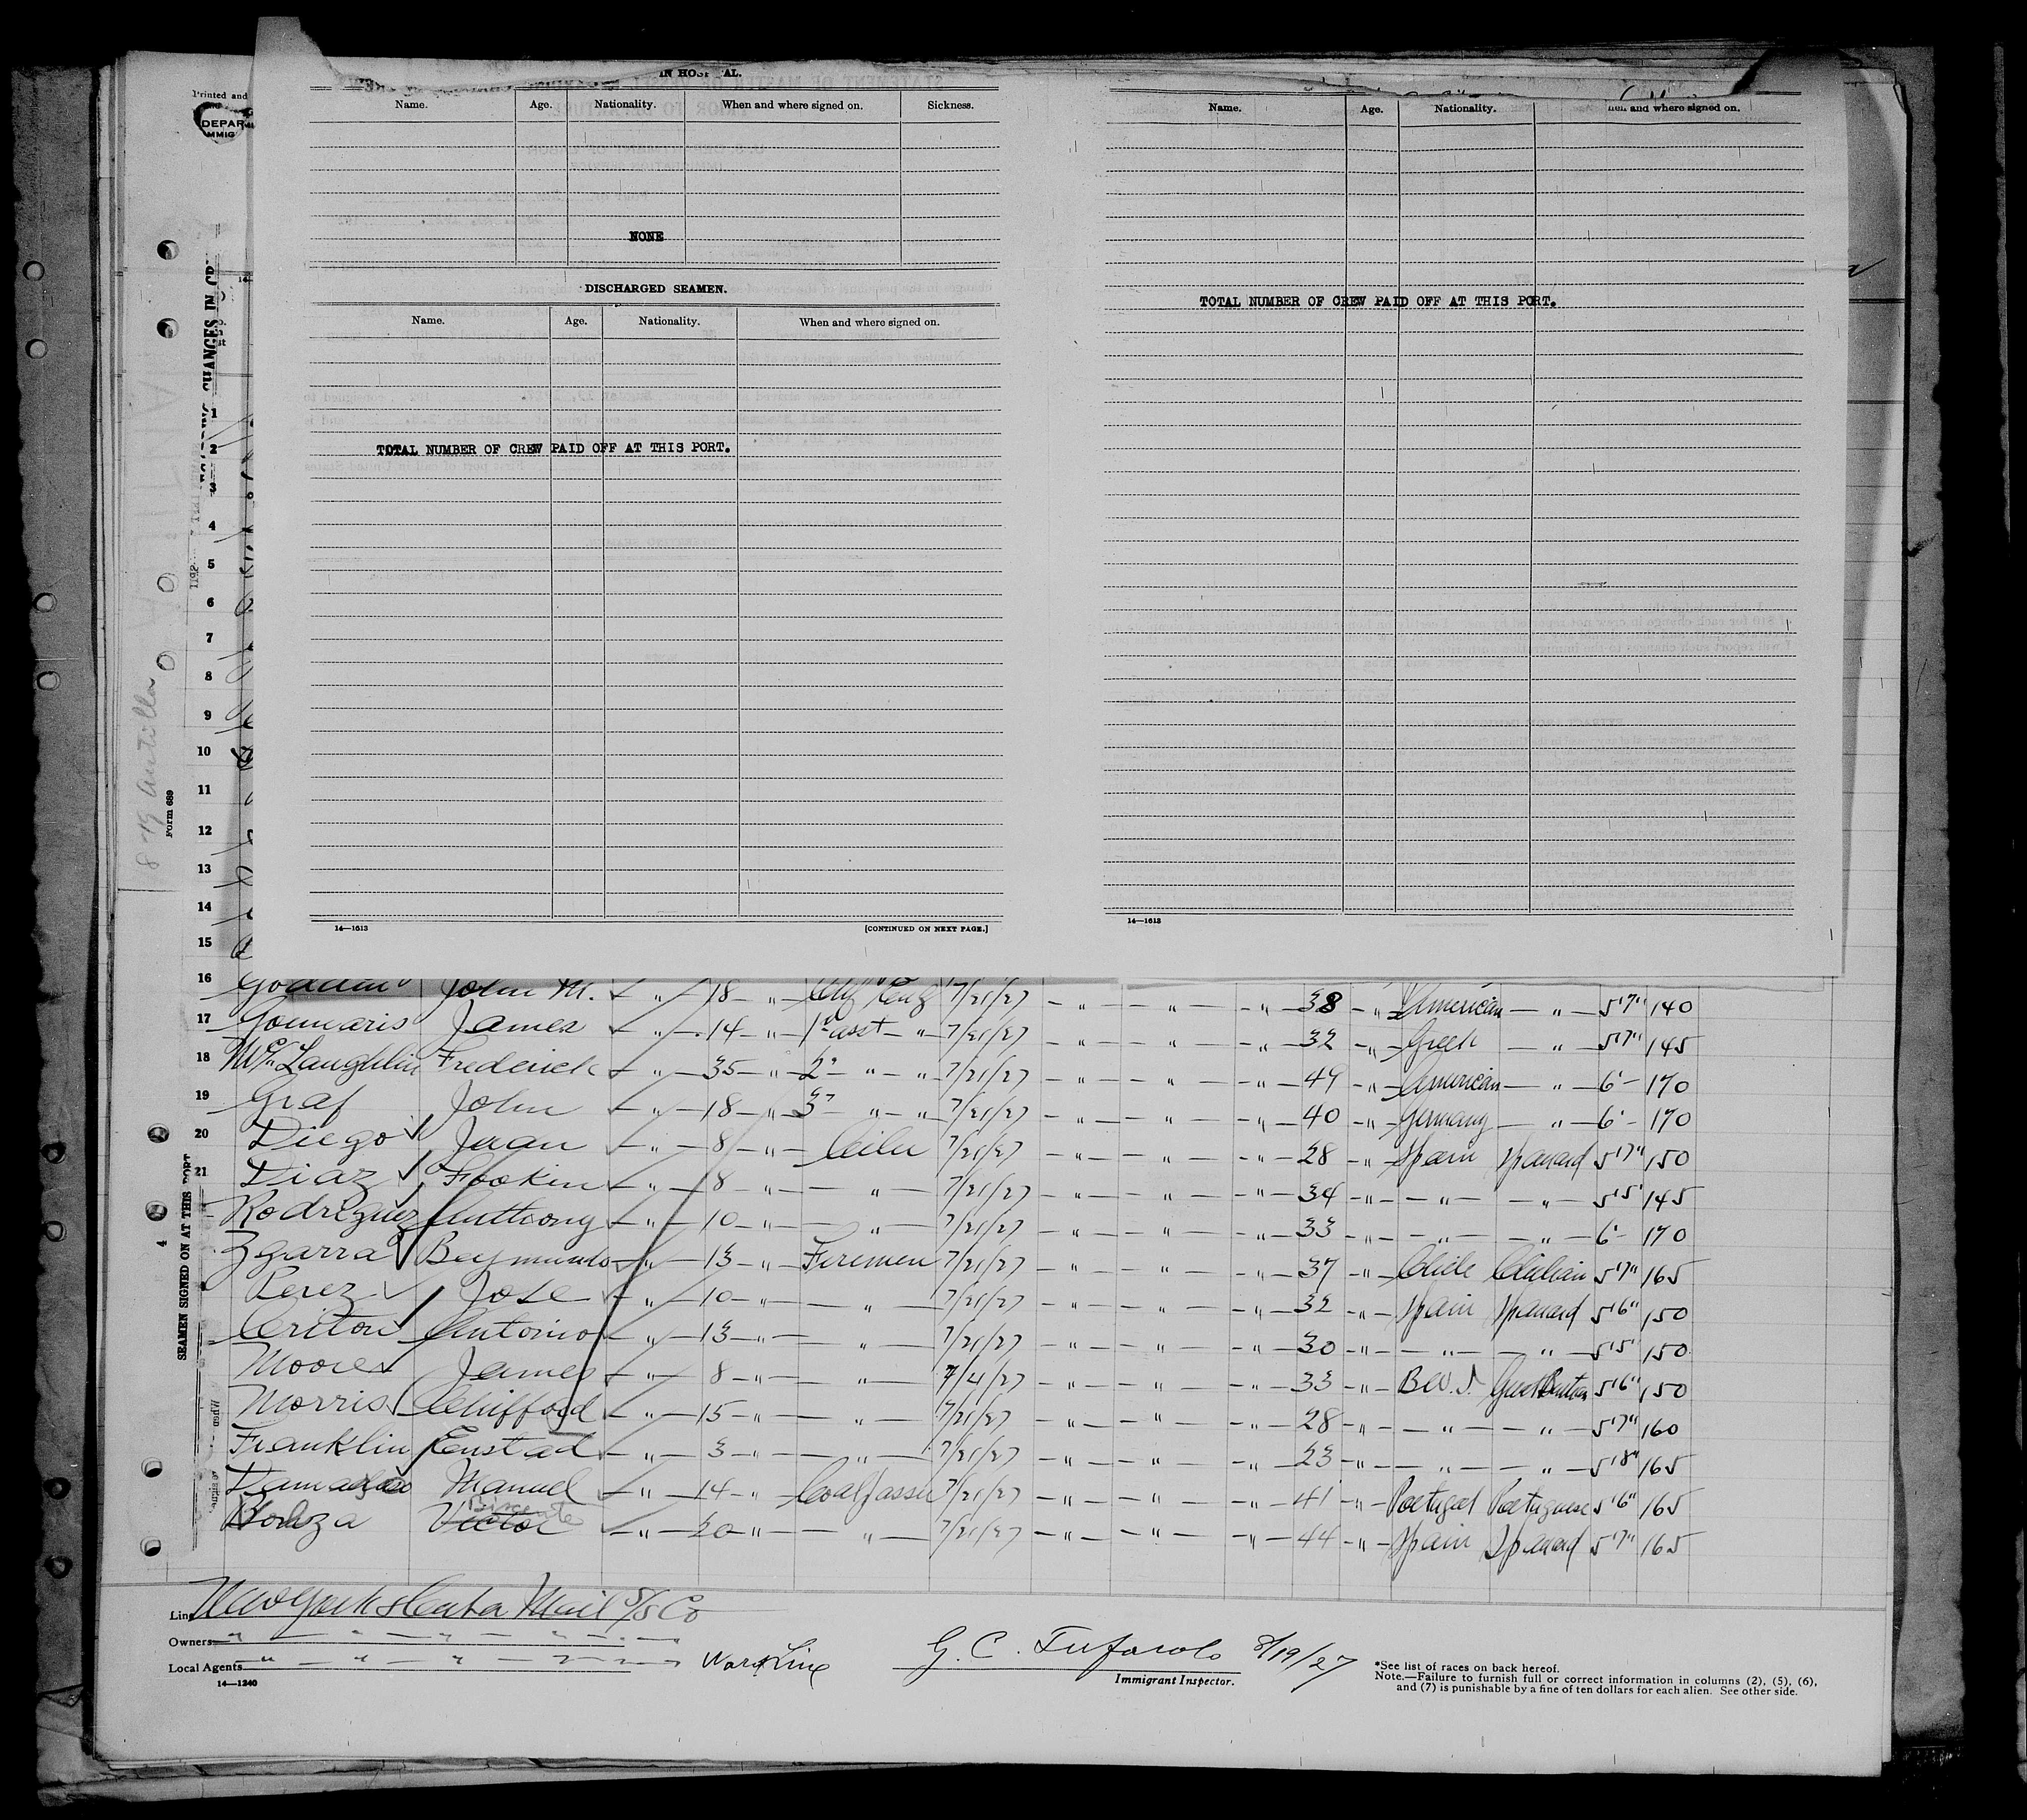 Printed and
DEPAR
MMIG
IN HOSPITAL.
Name. Age. Nationality. When and where signed on. Sickness.
NONE
DISCHARGED SEAMEN.
Name. Age. Nationality. When and where signed on.
TOTAL NUMBER OF CREW PAID OFF AT THIS PORT.
14—1613 [CONTINUED ON NEXT PAGE.]
Name. Age. Nationality. When and where signed on.
TOTAL NUMBER OF CREW PAID OFF AT THIS PORT.
14—1613
CHANGES IN CR
8-19 Antilla
Form 689
SEAMEN SIGNED ON AT THIS PORT
4
1
2
3
4
5
6
7
8
9
10
11
12
13
14
15
16 John M. ✓ " 18 " 7/21/27 " " " 38 " American " 5'7" 140
17 Gounaris James ✓ " 14 " 1st asst " 7/21/27 " " " 32 " Greek " 5'7" 145
18 McLaughlin Frederick ✓ " 35 " 2" " " 7/21/27 " " " 47 " American " 6' 170
19 Graf John ✓ " 18 " 3" " " 7/21/27 " " " 40 " Germany " 6' 170
20 Diego ✓ Juan ✓ " 8 " Oiler 7/21/27 " " " 28 " Spain Spaniard 5'7" 150
21 Diaz ✓ Fookin ✓ " 8 " " 7/21/27 " " " 34 " " " 5'5" 145
Rodriguez Anthony ✓ " 10 " " 7/21/27 " " " 33 " " " 6' 170
Zgarra ✓ Beymundo ✓ " 13 " Firemen 7/21/27 " " " 37 " Chile Chilian 5'7" 165
Perez ✓ Jose ✓ " 10 " " 7/21/27 " " " 32 " Spain Spaniard 5'6" 150
Criton Antonio ✓ " 13 " " 7/21/27 " " " 30 " " " 5'5" 150
Moore ✓ James ✓ " 8 " " 7/4/27 " " " 33 " B.W.I. 5'6" 150
Morris ✓ Chifford ✓ " 15 " " 7/21/27 " " " 28 " " " 5'7" 160
Franklin Eustad ✓ " 3 " " 7/21/27 " " " 23 " " " 5'8" 165
Manuel ✓ " 14 " Coal Passer 7/21/27 " " " 41 " Portugal Portuguese 5'6" 165
Victor ✓ " 20 " " 7/21/27 " " " 44 " Spain Spaniard 5'7" 165
Line New York & Cuba Mail S/S Co
Owners " " " " " "
Local Agents " " " " " " Ward Line
14—1240
G. C. Tufarolo 8/19/27
Immigrant Inspector.
*See list of races on back hereof.
Note.—Failure to furnish full or correct information in columns (2), (5), (6),
and (7) is punishable by a fine of ten dollars for each alien. See other side.